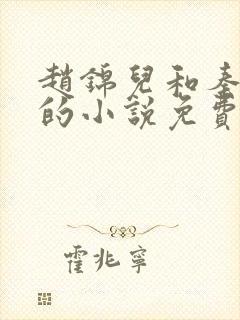 趙錦兒和秦
的小說免費
霍兆寧